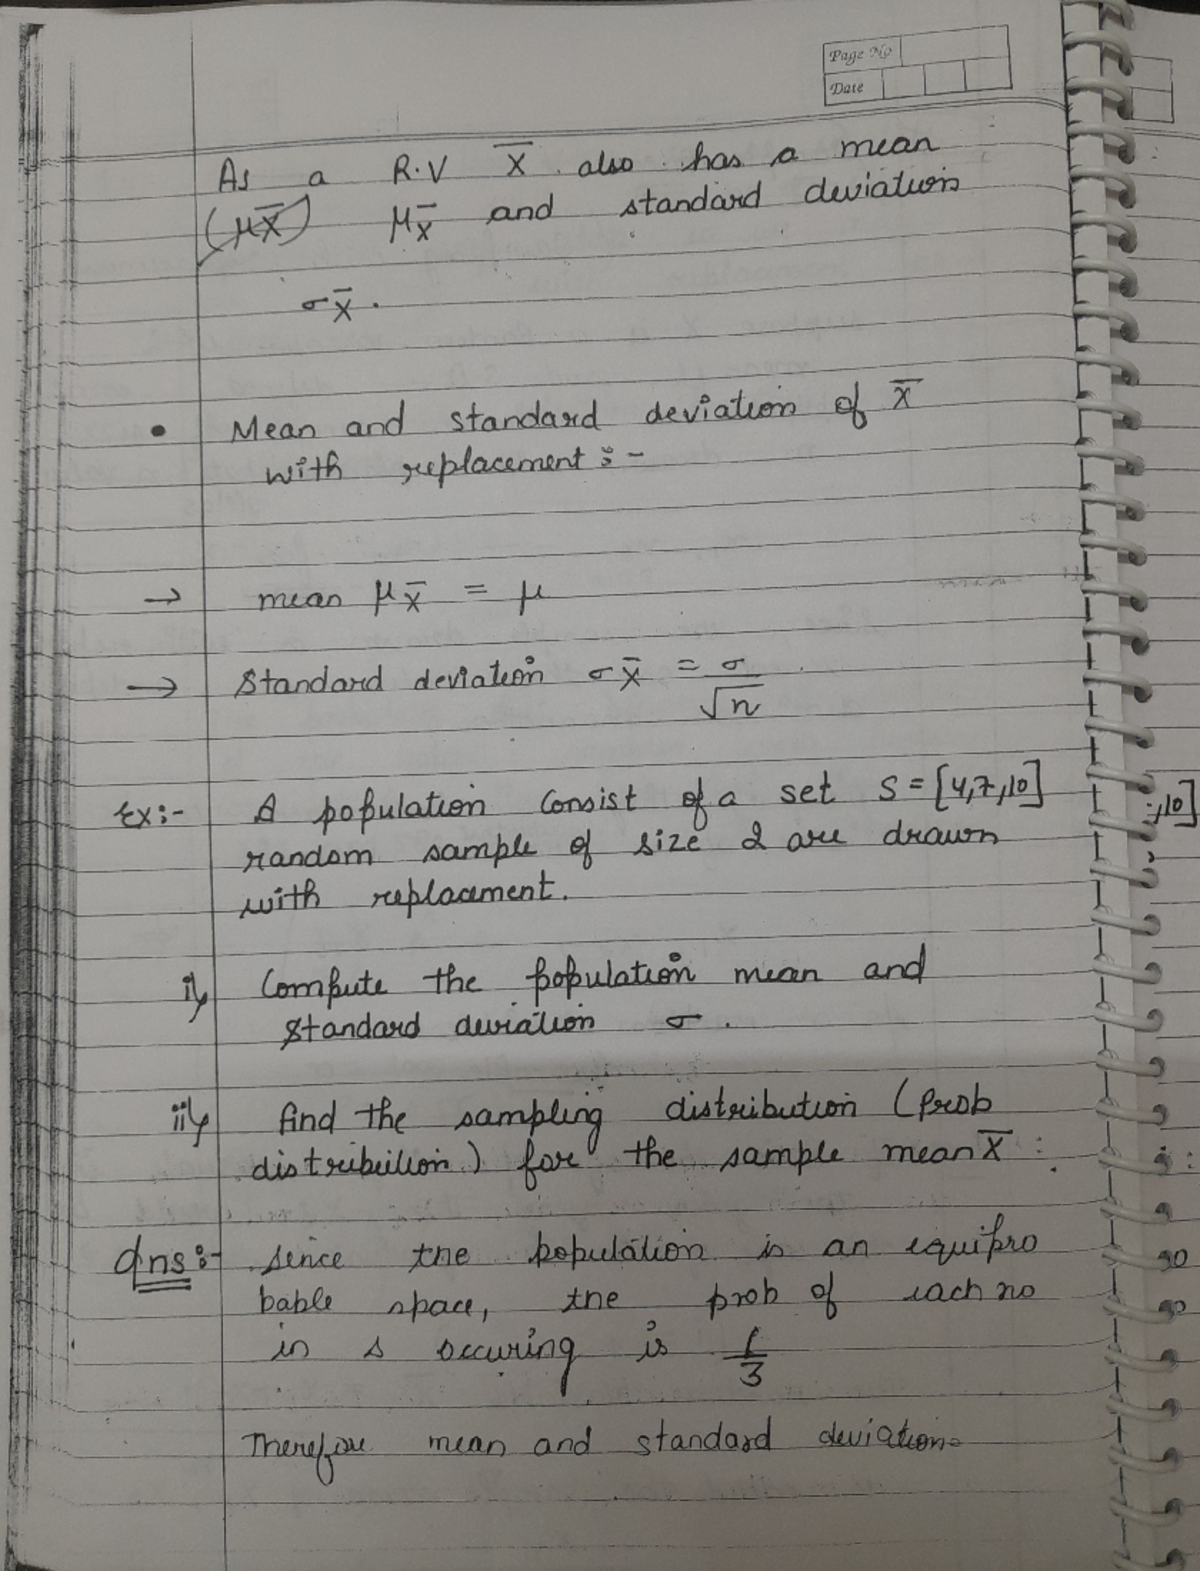 Page No
Date
As a R.V X̅ also has a mean
(μX̅) μX̅ and standard deviation
σX̅.
• Mean and standard deviation of X̅
with replacement :-
→ mean μX̅ = μ
→ Standard deviation σX̅ = σ/√n
Ex:- A population consist of a set S = [4,7,10]
random sample of size 2 are drawn
with replacement.
i) Compute the population mean and
standard deviation σ.
ii) find the sampling distribution (prob
distribution) for the sample mean X̅ :
Ans:- Sence the population is an equipro
bable space, the prob of each no
in s occuring is 1/3
Therefore mean and standard deviation=
,10]